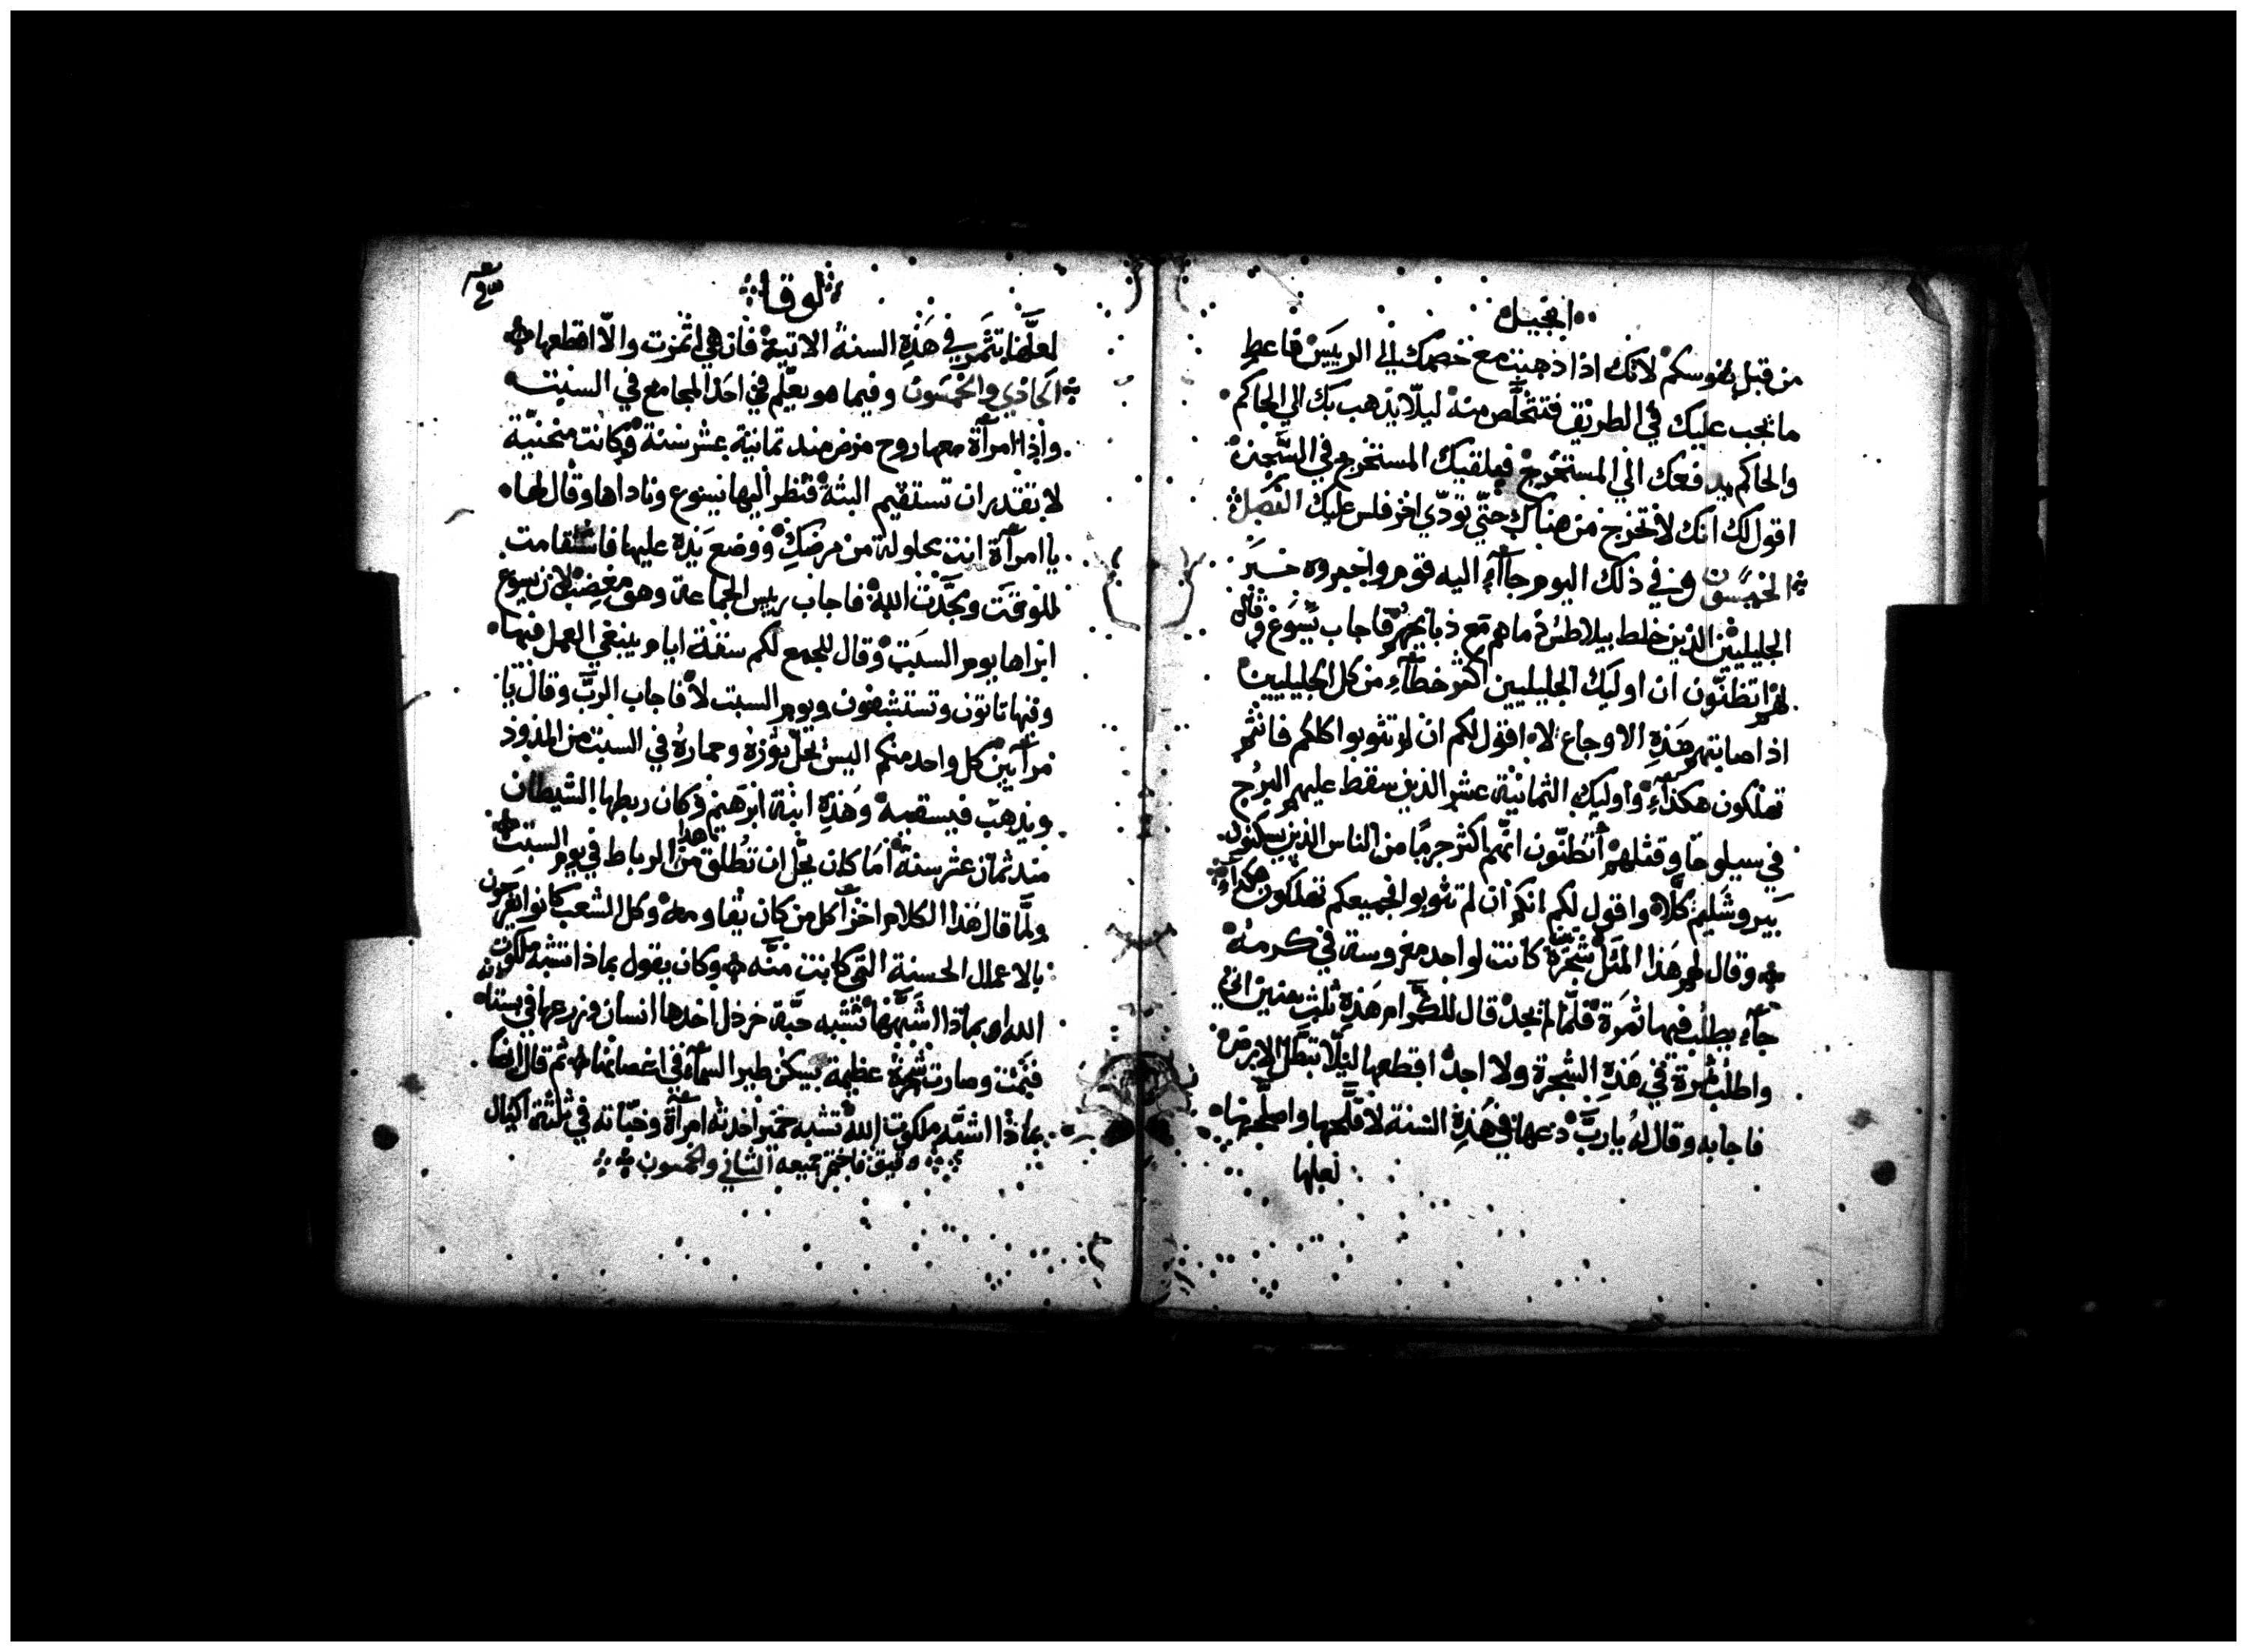 انجيل
من قبل نفوسكم لانك اذا ذهبت مع خصمك الي الرييس فاعطِ
ما يجب عليك في الطريق فتتخلّص منه ليلّا يذهب بك الي الحاكم
والحاكم يدفعك الي المستخرج فيلقيك المستخرج في السّجن
اقول لك انك لا تخرج من هناك حتّي تودّي اخر فلس عليك الفصل
الخمسون وفي ذلك اليوم جآء اليه قوم واخبروه خبَر
الجليليّين الذين خلط بيلاطس دماهم مَع ذبايحهم فاجاب يَسَوع وقال
لهم اتظنّون ان اوليك الجليليين اكثر خطآء من كل الجليليين
اذ اصابتهم هَذِهِ الاوجاع لا اقول لكم ان لم تتوبوا كلكم فانتم
تهلكون هكذآء واوليك الثمانية عشر الذين سقط عليهم البرج
في سيلوحا وقتلهم أتظنّون انّهم اكثر جرمًا من الناس الذين يسكنون
بيروشليم كلّا واقول لكم انكم ان لم تتوبوا فجميعكم تهلكون هكذآء
وقال لهم هَذا المَثل شجَرة تين كانت لواحد مغروسة في كرمه
جآء يطلب فيها ثمَرة فلمّا لم يجد قال للكرّام هَذِهِ ثلث سنين اتي
واطلب ثمرة في هَذِهِ الشجرة ولا اجد اقطعها ليلّا تبطّل الارض
فاجابه وقال لهُ يا ربّ دعها في هَذِهِ السَنة لافلّحها واصلحها
لعلها
لوقا
لعلّها تثمر في هَذِهِ السنة الاتية فان هي اثمرت والّا اقطعها
الحادي والخمسَون وفيما هو يعّلم في احَد المجامع في السبت
واذا امرآة معها روح مرض منذ ثمانية عشر سَنة وكانت منحنيّة
لا تقدر ان تستقيم البتة فنظر اليها يسوع وناداها وقال لها
يا امرآة انت محلولة من مرضكِ ووضع يَدِه عليها فاستقامت
للوقت ومجّدت الله فاجاب رييس الجماعة وهو مغضب لان يسوع
ابراها يوم السَبت وقال للجمع لكم ستة ايام ينبغي العمل فيها
وفيها تاتون وتستشفون ويوم السبت لا فاجاب الربّ وقال يا
مرآيين كل واحد منكم اليس يحلّ ثورهُ وحمارهُ في السبت من المذود
ويذهبْ فيسقيه وهَذِهِ ابنة ابرَهيم وكان ربطها الشيطان
منذ ثمان عشر سنة أمَا كان يحلّ ان تُطلق من هذا الرباط في يوم السبت
ولمّا قال هَذا الكلام اخزآ كل من كان يقاومه وكل الشعب كانوا يفرحون
بالاعمال الحسنة التي كانت منّه وكان يقول بماذا تشبه ملكوت
الله او بماذا اشبّهها تشبه حبّة خردل اخذها انسان وزرعها في بستانه
فنَمت وصارت شجرة عظيمة يسكن طير السمآء في اغصانها ثم قال ايضًا
بماذا اشبّه ملكوت الله تشبه خمير اخذته امرآة وخبّاته في ثلثة اكيال
دقيق فاختمر جميعه الثاني والخمسون